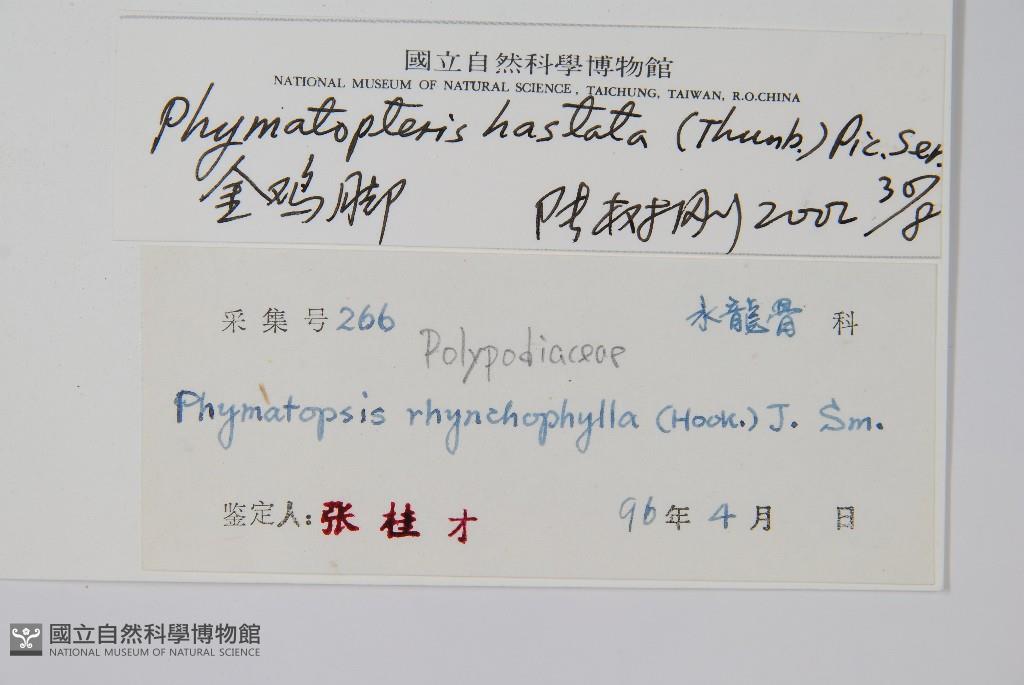 國立自然科學博物館
NATIONAL MUSEUM OF NATURAL SCIENCE, TAICHUNG, TAIWAN, R.O.CHINA
Phymatopteris hastata (Thunb.) Pic. Ser.
金鸡脚 陆树刚 2002 30/8
采集号 266 水龍骨 科
Polypodiaceae
Phymatopsis rhynchophylla (Hook.) J. Sm.
鉴定人: 张桂才 96年4月 日
國立自然科學博物館
NATIONAL MUSEUM OF NATURAL SCIENCE